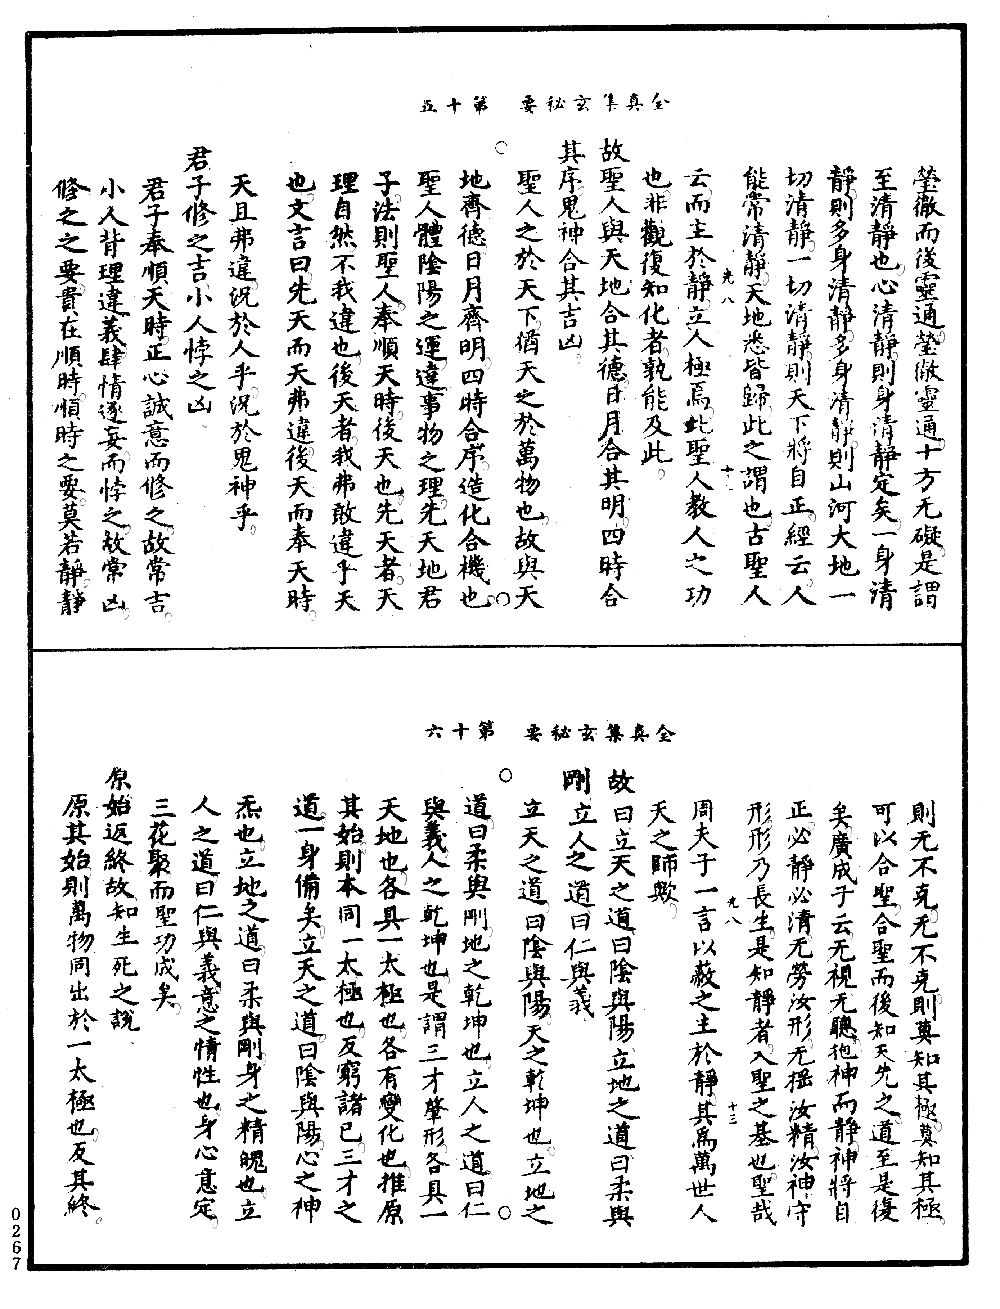 全真集玄秘要　第十五
瑩徹而後靈通瑩徹靈通十方无礙是謂
至清靜也心清靜則身清靜定矣一身清
靜則多身清靜多身清靜則山河大地一
切清靜一切清靜則天下將自正經云人
能常清靜天地悉皆歸此之謂也古聖人
光八　十二
云而主於靜立人極焉此聖人教人之功
也非觀復知化者孰能及此
故聖人與天地合其德日月合其明四時合
其序鬼神合其吉凶
○聖人之於天下猶天之於萬物也故與天
地齊德日月齊明四時合序造化合機也○
聖人體陰陽之運違事物之理先天地君
子法則聖人奉順天時後天也先天者天
理自然不我違也後天者我弗敢違乎天
也文言曰先天而天弗違後天而奉天時
天且弗違況於人乎況於鬼神乎
君子修之吉小人悖之凶
君子奉順天時正心誠意而修之故常吉
小人背理違義肆情逐妄而悖之故常凶
修之之要貴在順時順時之要莫若靜靜
全真集玄秘要　第十六
則无不克无不克則莫知其極莫知其極
可以合聖合聖而後知天先之道至是復
矣廣成子云无視无聽抱神而靜神將自
正必靜必清无勞汝形无搖汝精汝神守
形形乃長生是知靜者入聖之基也聖哉
光八　十三
周夫子一言以蔽之主於靜其爲萬世人
天之師歟
故曰立天之道曰陰與陽立地之道曰柔與
剛立人之道曰仁與義
○立天之道曰陰與陽天之乾坤也立地之○
道曰柔與剛地之乾坤也立人之道曰仁
與義人之乾坤也是謂三才肇形各具一
天地也各具一太極也各有變化也推原
其始則本同一太極也反窮諸己三才之
道一身備矣立天之道曰陰與陽心之神
炁也立地之道曰柔與剛身之精魄也立
人之道曰仁與義意之情性也身心意定
三花聚而聖功成矣
原始返終故知生死之說
原其始則萬物同出於一太極也反其終
0267